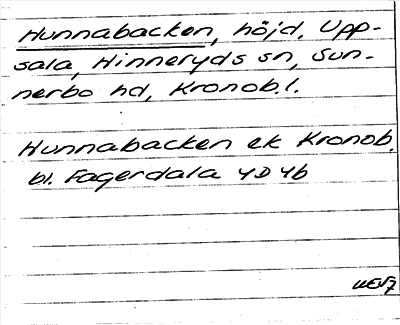 Hunnabacken, höjd, Upp-
sala, Hinneryds sn, Sun-
nerbo hd, Kronob.l.
Hunnabacken ek Kronob.
bl. Fagerdala 4D4b